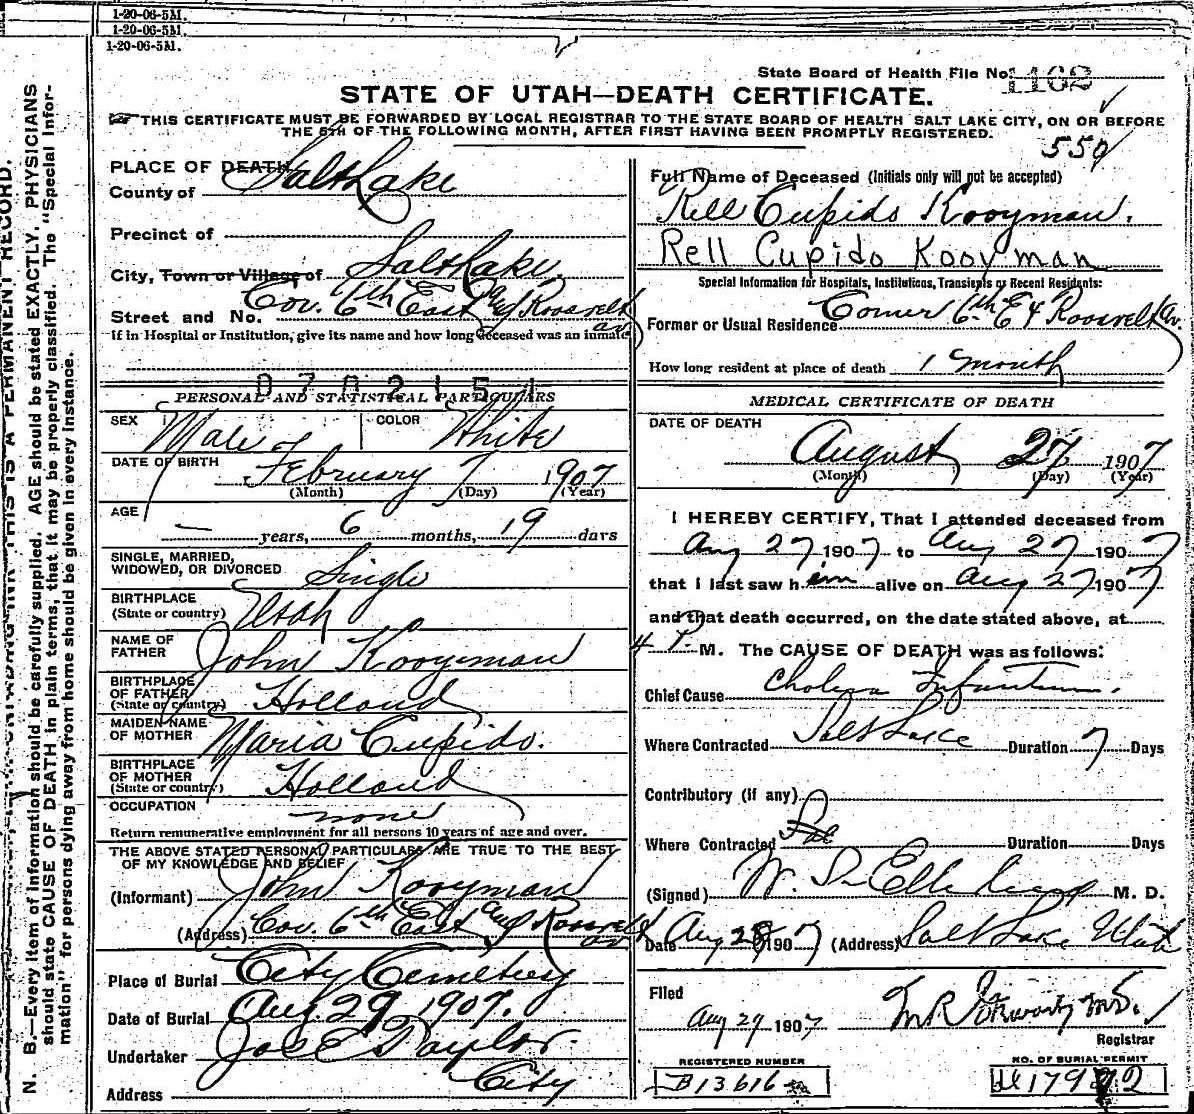 1-20-06-5M.
1-20-06-5M.
1-20-06-5M.
State Board of Health File No. 1162
STATE OF UTAH—DEATH CERTIFICATE.
THIS CERTIFICATE MUST BE FORWARDED BY LOCAL REGISTRAR TO THE STATE BOARD OF HEALTH SALT LAKE CITY, ON OR BEFORE
THE 5TH OF THE FOLLOWING MONTH, AFTER FIRST HAVING BEEN PROMPTLY REGISTERED.
N. B.—Every item of information should be carefully supplied. AGE should be stated EXACTLY. PHYSICIANS
should state CAUSE OF DEATH in plain terms, that it may be properly classified. The "Special Infor-
mation" for persons dying away from home should be given in every instance.
THIS IS A PERMANENT RECORD.
PLACE OF DEATH
County of Salt Lake
Precinct of
City, Town or Village of Salt Lake
Street and No. Cor. 6th East and Roosevelt av
If in Hospital or Institution, give its name and how long deceased was an inmate
0702154
PERSONAL AND STATISTICAL PARTICULARS
SEX Male COLOR White
DATE OF BIRTH February 7 1907
(Month) (Day) (Year)
AGE
— years, 6 months, 19 days
SINGLE, MARRIED,
WIDOWED, OR DIVORCED Single
BIRTHPLACE
(State or country) Utah
NAME OF
FATHER John Kooyman
BIRTHPLACE
OF FATHER
(State or country) Holland
MAIDEN NAME
OF MOTHER Maria Cupido.
BIRTHPLACE
OF MOTHER
(State or country) Holland
OCCUPATION none
Return remunerative employment for all persons 10 years of age and over.
THE ABOVE STATED PERSONAL PARTICULARS ARE TRUE TO THE BEST
OF MY KNOWLEDGE AND BELIEF
(Informant) John Kooyman
(Address) Cor. 6th East and Roosevelt av
Place of Burial City Cemetery
Date of Burial Aug. 29 1907.
Undertaker Jos E Taylor.
Address City
550
Full Name of Deceased (Initials only will not be accepted)
Rell Cupido Kooyman.
Rell Cupido Kooyman
Special Information for Hospitals, Institutions, Transients or Recent Residents:
Former or Usual Residence Corner 6th E & Roosevelt Av.
How long resident at place of death 1 month
MEDICAL CERTIFICATE OF DEATH
DATE OF DEATH
August 27 1907
(Month) (Day) (Year)
I HEREBY CERTIFY, That I attended deceased from
Aug 27 1907 to Aug 27 1907
that I last saw him alive on Aug 27 1907
and that death occurred, on the date stated above, at
4 P. M. The CAUSE OF DEATH was as follows:
Chief Cause Cholera Infantum.
Where Contracted Salt Lake Duration 7 Days
Contributory (if any)
Where Contracted Duration Days
(Signed) W. M. D.
Date Aug 28 1907 (Address) Salt Lake Utah
Filed
Aug 29 1907 M.D.
Registrar
REGISTERED NUMBER
B13616
NO. OF BURIAL PERMIT